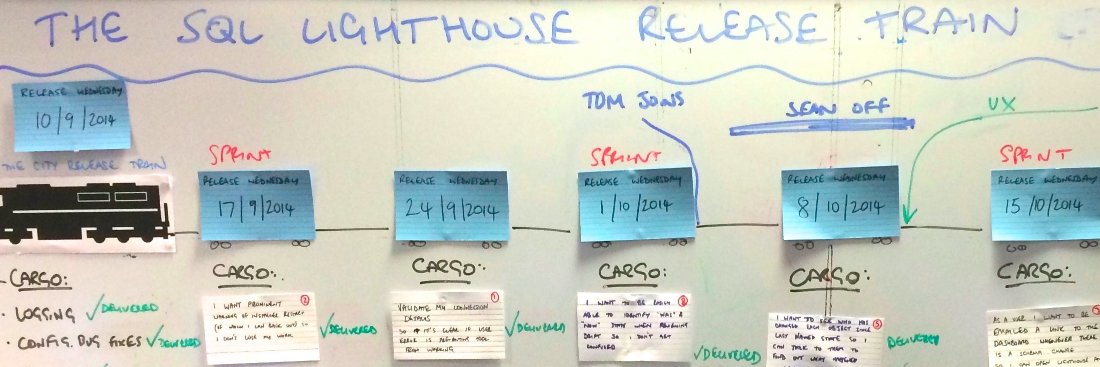 THE SQL LIGHTHOUSE RELEASE TRAIN
RELEASE WEDNESDAY
10/9/2014
THE CITY RELEASE TRAIN
CARGO:
• LOGGING ✓DELIVERED
• CONFIG. BUG FIXES ✓DELIVERED
SPRINT
RELEASE WEDNESDAY
17/9/2014
CARGO:
2
I WANT PROMINENT
WARNING OF INSTALLER RESTART
(OF WHICH I CAN BACK OUT) SO
I DON'T LOSE MY WORK
✓DELIVERED
RELEASE WEDNESDAY
24/9/2014
CARGO:
1
VALIDATE MY CONNECTION
DETAILS
SO IF IT'S CLEAR IF USER
ERROR IS PREVENTING TOOL
FROM WORKING
✓DELIVERED
TOM JOINS
SPRINT
RELEASE WEDNESDAY
1/10/2014
CARGO:
I WANT TO BE EASILY
ABLE TO IDENTIFY WAS &
NOW STATE WHEN REVIEWING
DRIFT SO I DON'T GET
CONFUSED
✓DELIVERED
SEAN OFF
RELEASE WEDNESDAY
8/10/2014
CARGO:
5
I WANT TO SEE WHO HAS
CHANGED EACH OBJECT SINCE
LAST NAMED STATE SO I
CAN TALK TO THEM TO
FIND OUT WHAT HAPPENED
DELIVERED
UX
SPRINT
RELEASE WEDNESDAY
15/10/2014
CARGO:
AS A USER I WANT TO BE
EMAILED A LINK TO THE
DASHBOARD WHENEVER THERE
IS A SCHEMA CHANGE
SO I CAN OPEN LIGHTHOUSE